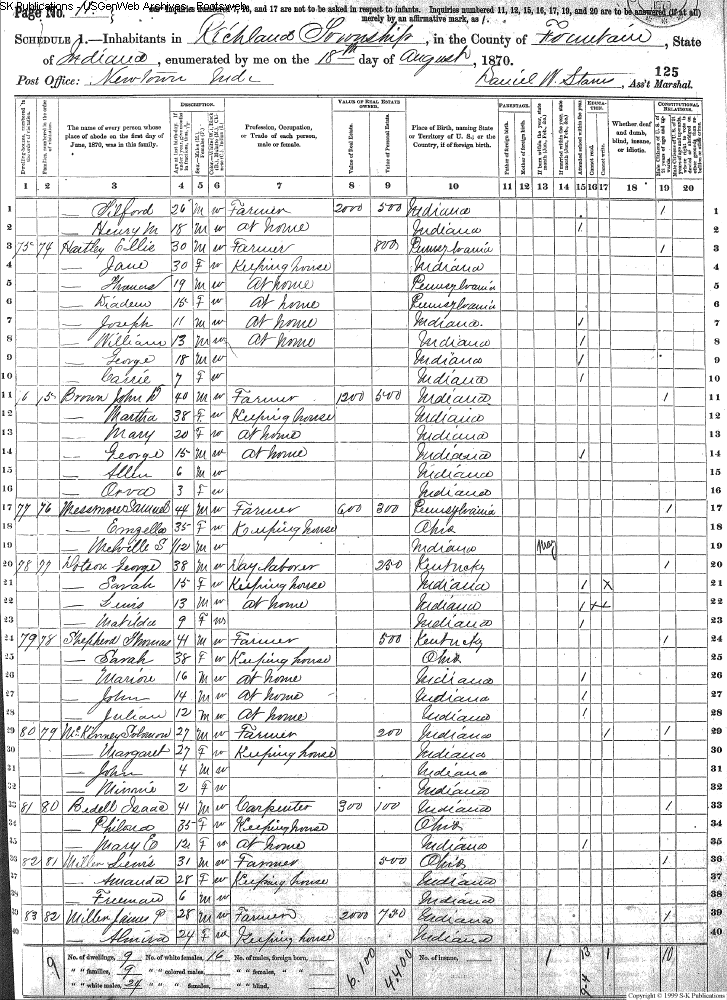 SK Publications - USGenWeb Archives - Rootsweb
Page No. Inquiries numbered 7, 16, and 17 are not to be asked in respect to infants. Inquiries numbered 11, 12, 15, 16, 17, 19, and 20 are to be answered (if at all)
merely by an affirmative mark, as /.
SCHEDULE 1.—Inhabitants in Richland Township, in the County of Fountain, State
of Indiana, enumerated by me on the 18th day of August, 1870.
Post Office: Newtown Inda Daniel W. , Ass't Marshal.
125
DESCRIPTION. VALUE OF REAL ESTATE OWNED. PARENTAGE. EDUCATION. CONSTITUTIONAL RELATIONS.
The name of every person whose place of abode on the first day of June, 1870, was in this family.
Profession, Occupation, or Trade of each person, male or female.
Value of Real Estate. Value of Personal Estate.
Place of Birth, naming State or Territory of U. S.; or the Country, if of foreign birth.
Father of foreign birth. Mother of foreign birth.
Attended school within the year. Cannot read. Cannot write.
Whether deaf and dumb, blind, insane, or idiotic.
1 2 3 4 5 6 7 8 9 10 11 12 13 14 15 16 17 18 19 20
1 — Tilford 26 M W Farmer 2000 500 Indiana 1 1
2 — Henry M 18 M W At home Indiana 1 2
3 75 74 Hartley Ellis 30 M W Farmer 800 Pennsylvania 1 3
4 — Jane 30 F W Keeping house Indiana 4
5 — Thomas 19 M W At home Pennsylvania 5
6 — Diadem 15 F W At home Pennsylvania 6
7 — Joseph 11 M W At home Indiana 1 7
8 — William 13 M W At home Indiana 1 8
9 — George 18 M W Indiana 1 9
10 — Carrie 7 F W Indiana 1 10
11 6 15 Brown John D 40 M W Farmer 1200 500 Indiana 1 11
12 — Martha 38 F W Keeping house Indiana 12
13 — Mary 20 F W At home Indiana 13
14 — George 15 M W At home Indiana 1 14
15 — Allen 6 M W Indiana 15
16 — Orva 3 F W Indiana 16
17 77 76 Messmore Samuel 44 M W Farmer 600 300 Pennsylvania 1 17
18 — Emzella 35 F W Keeping house Ohio 18
19 — Melville S 1/12 M W Indiana May 19
20 78 77 Dotson George 38 M W Day laborer 250 Kentucky 1 20
21 — Sarah 15 F W Keeping house Indiana 1 X 21
22 — Lewis 13 M W At home Indiana 1 X X 22
23 — Matilda 9 F W Indiana 1 23
24 79 78 Shepherd Thomas 41 M W Farmer 500 Kentucky 1 24
25 — Sarah 38 F W Keeping house Ohio 25
26 — Marion 16 M W At home Indiana 1 26
27 — John 14 M W At home Indiana 1 27
28 — Julian 12 M W At home Indiana 1 28
29 80 79 McKenney Solomon 27 M W Farmer 200 Indiana 1 1 29
30 — Margaret 27 F W Keeping house Indiana 30
31 — John 4 M W Indiana 31
32 — Minnie 2 F W Indiana 32
33 81 80 Bedell Isaac 41 M W Carpenter 300 100 Indiana 1 33
34 — Philona 35 F W Keeping house Ohio 34
35 — Mary E 12 F W At home Indiana 1 35
36 82 81 Miller Lewis 31 M W Farmer 500 Ohio 1 36
37 — Amanda 28 F W Keeping house Indiana 37
38 — Freeman 6 M W Indiana 38
39 83 82 Miller James P 28 M W Farmer 2000 750 Indiana 1 39
40 — Almira 24 F W Keeping house Indiana 40
No. of dwellings, 9 No. of white females, 16 No. of males, foreign born, No. of insane,
" " families, 9 " " colored males, " " females, " "
" " white males, 24 " " females, " " blind,
9 6.100 4,400 1 13 1 10
Copyright © 1999 S-K Publications